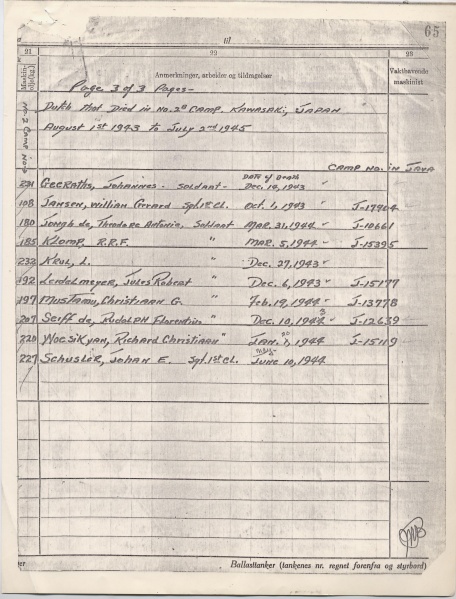 65
til
21 22 23
Maskin-olje(kg.) Anmerkninger, arbeider og tildragelser Vakthavende maskinist
Page 3 of 3 Pages-
Dutch that Died in No. 2B CAMP. KAWASAKI, JAPAN
August 1st 1943 to July 2nd 1945
No-2 Camp No-
CAMP NO. IN JAVA
Date of Death
221 Geeraths, Johannes - Soldaat - Dec. 14, 1943 "
108 Jansen, William Gerard Sgt. 1st Cl. Oct. 1, 1943 " J-17904
180 Jongh de, Theodore Antonie, Soldaat MAR. 31, 1944 " J-10661
185 Klomp, R.R.F. " MAR. 5, 1944 - J-15395
232 Krol, L. " Dec. 27, 1943 "
192 Leidelmeyer, Jules Robert " Dec. 6, 1943 " J-15177
197 Mustamu, Christiaan G. " Feb. 19, 1944 - J-13778
207 Seiff de, Rudolph Florentin " Dec. 10, 1944 3 J-12639
220 Woe Sik yan, Richard Christiaan " JAN. 1, 1944 J-15119
227 Schusler, Johan E. Sgt. 1st Cl. June 10, 1944
JMB
Ballasttanker (tankenes nr. regnet forenfra og styrbord)